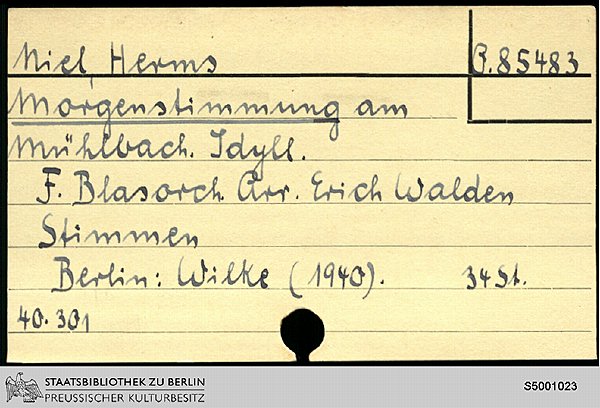 Niel, Herms B.85483
Morgenstimmung am
Mühlbach. Idyll.
F. Blasorch. Arr. Erich Walden
Stimmen
Berlin: Wilke (1940). 34 St.
40.301
STAATSBIBLIOTHEK ZU BERLIN
PREUSSISCHER KULTURBESITZ
S5001023